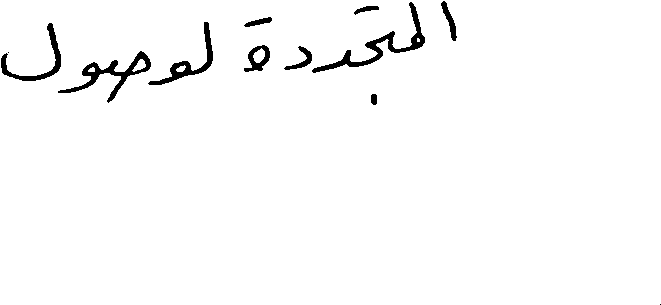 المتجددة لوصول